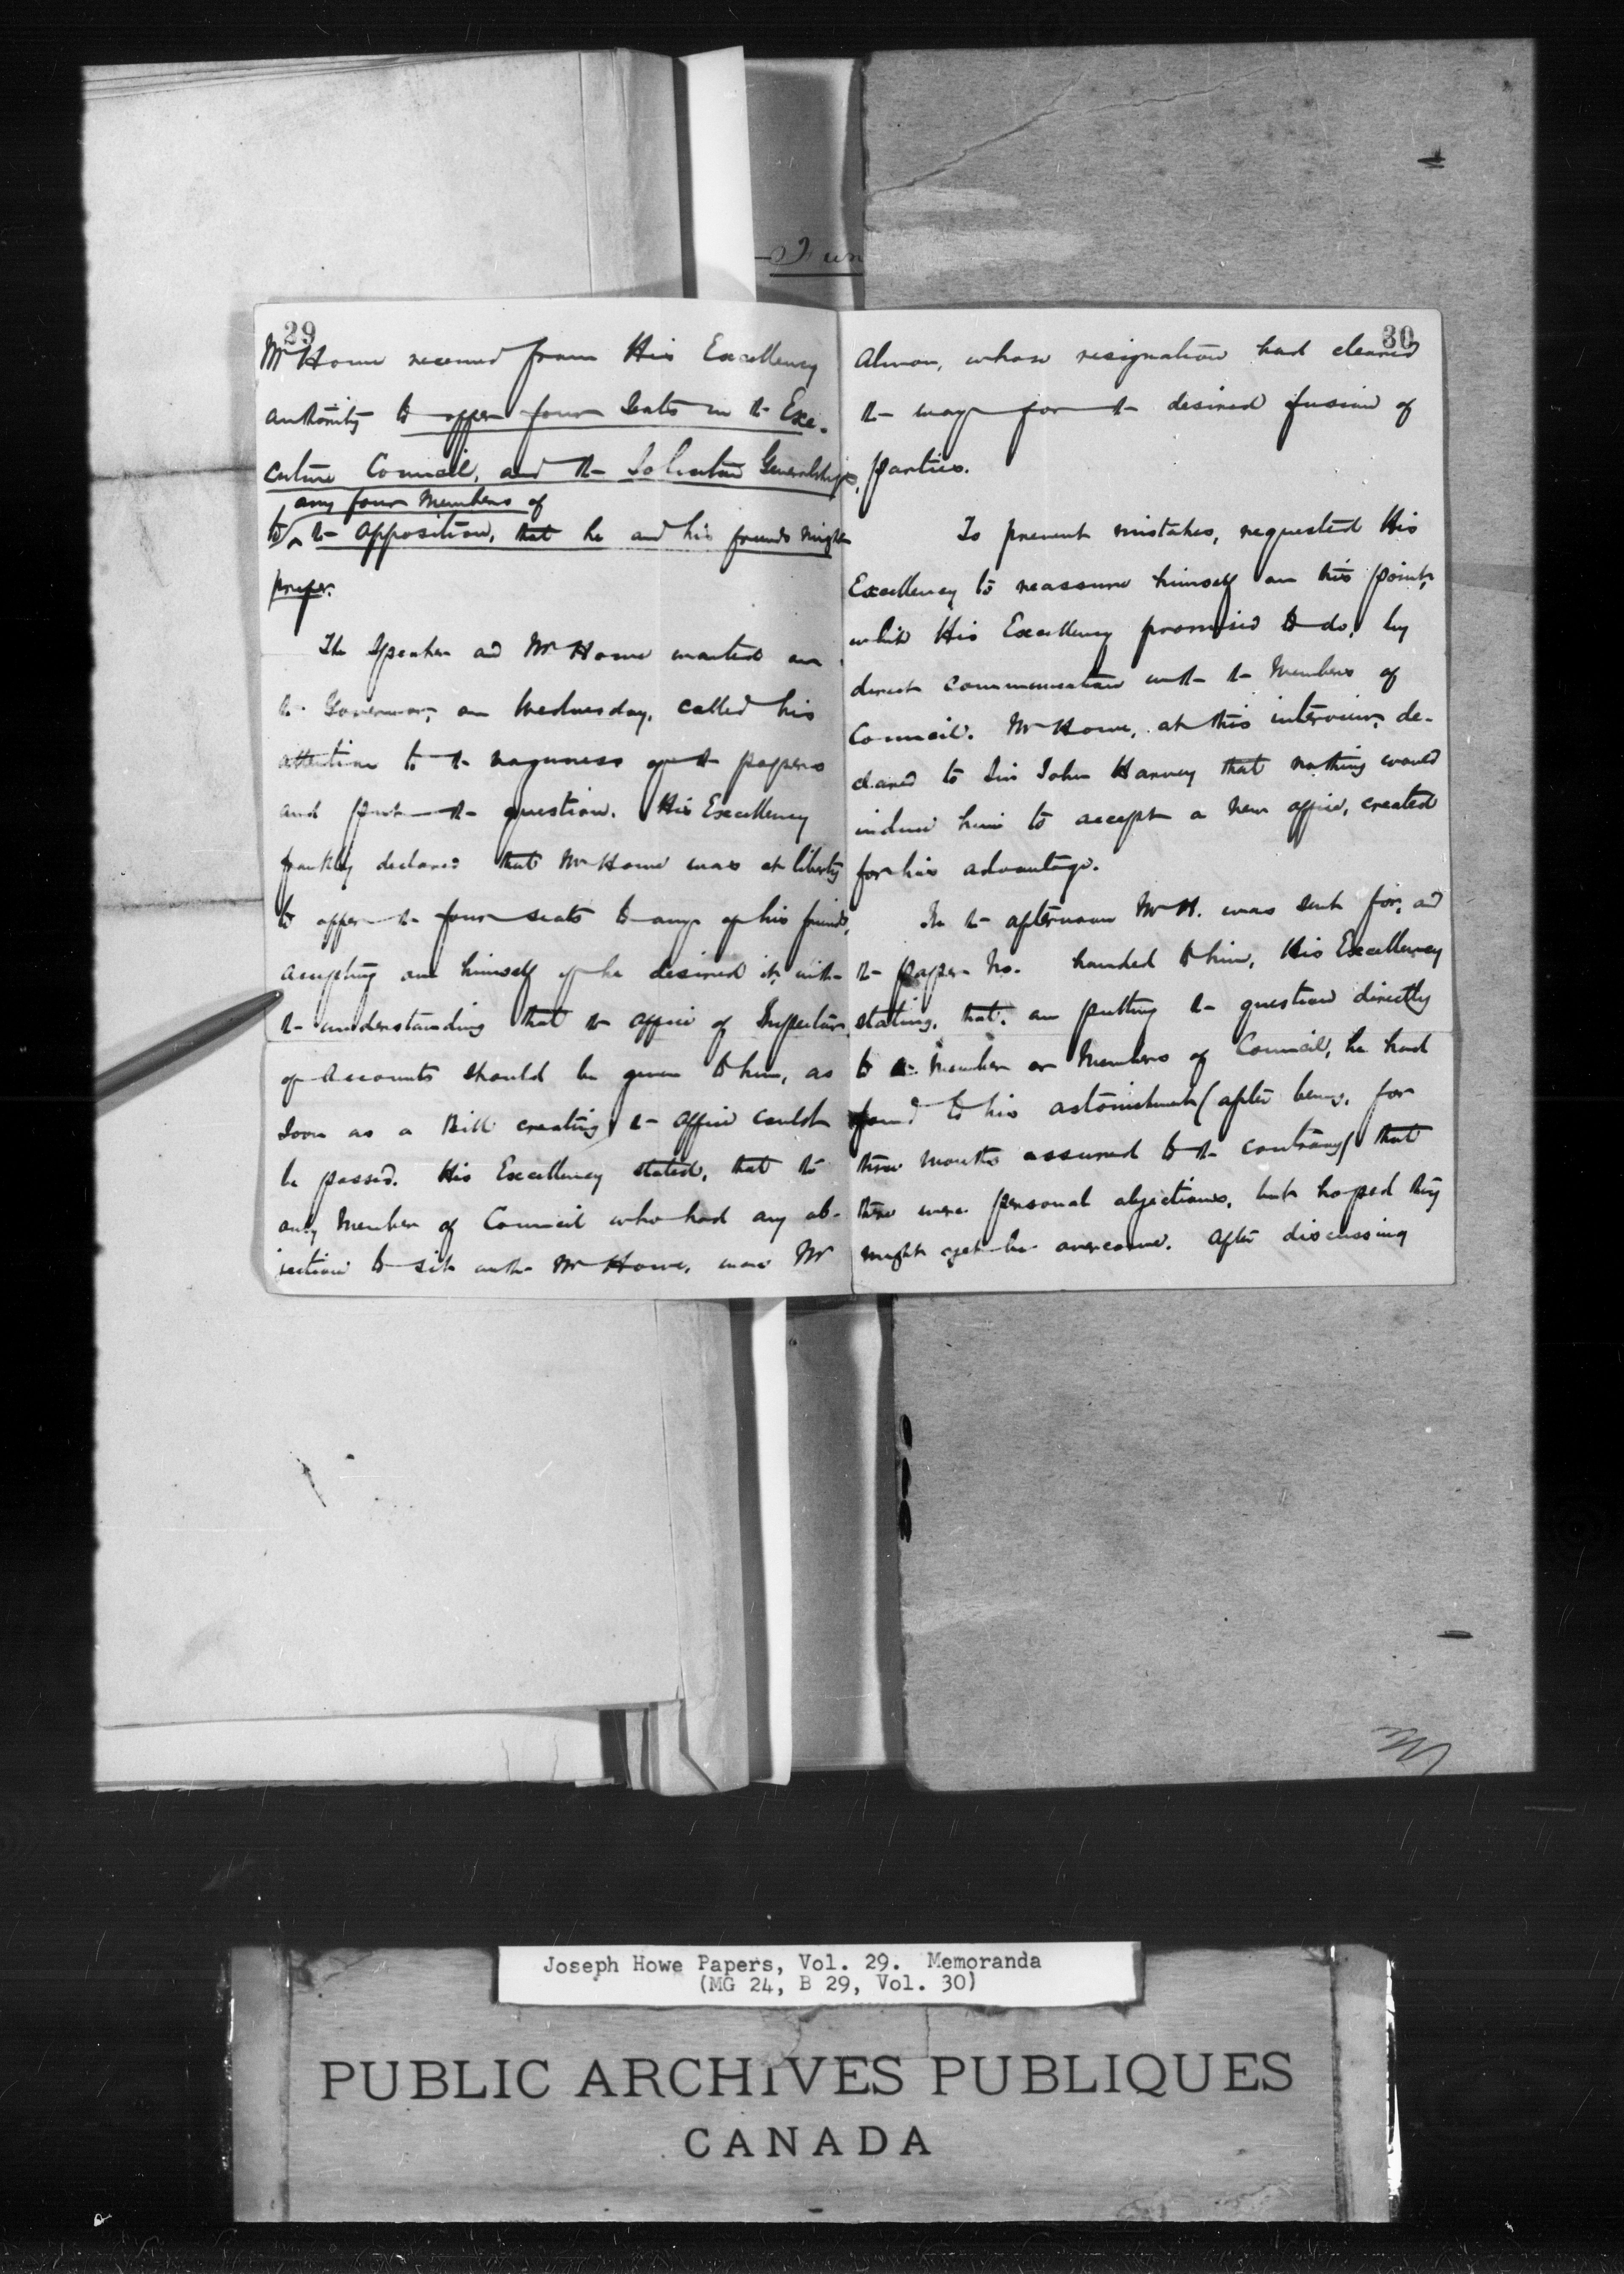 29
Mr Howe received from His Excellency
authority to offer four Seats in the Exe-
cutive Council, and the Solicitor Generalship,
any four Members of
to the Opposition, that he and his friends might
prefer.
The Speaker and Mr Howe waited on
the Governor, on Wednesday, called his
attention to the vagueness of the papers
and put the question. His Excellency
frankly declared that Mr Howe was at liberty
to offer the four seats to any of his friends,
accepting one himself if he desired it, with
the understanding that the office of Inspector
of Accounts should be given to him, as
soon as a Bill creating the office could
be passed. His Excellency stated, that the
only Member of Council who had any ob-
jection to sit with Mr Howe, was Mr
30
Almon, whose resignation had cleared
the way for the desired fusion of
parties.
To prevent mistakes, requested His
Excellency to reassure himself on this point,
which His Excellency promised to do, by
direct communication with the Members of
Council. Mr Howe, at this interview, de-
clared to Sir John Harvey that nothing would
induce him to accept a new office, created
for his advantage.
In the afternoon Mr H. was sent for, and
the paper No. handed to him, His Excellency
stating, that, on putting the question directly
to a Member or Members of Council, he had
found to his astonishment (after being, for
three months assured to the contrary) that
there were personal objections, but hoped they
might yet be overcome. After discussing
Joseph Howe Papers, Vol. 29. Memoranda
(MG 24, B 29, Vol. 30)
PUBLIC ARCHIVES PUBLIQUES
CANADA